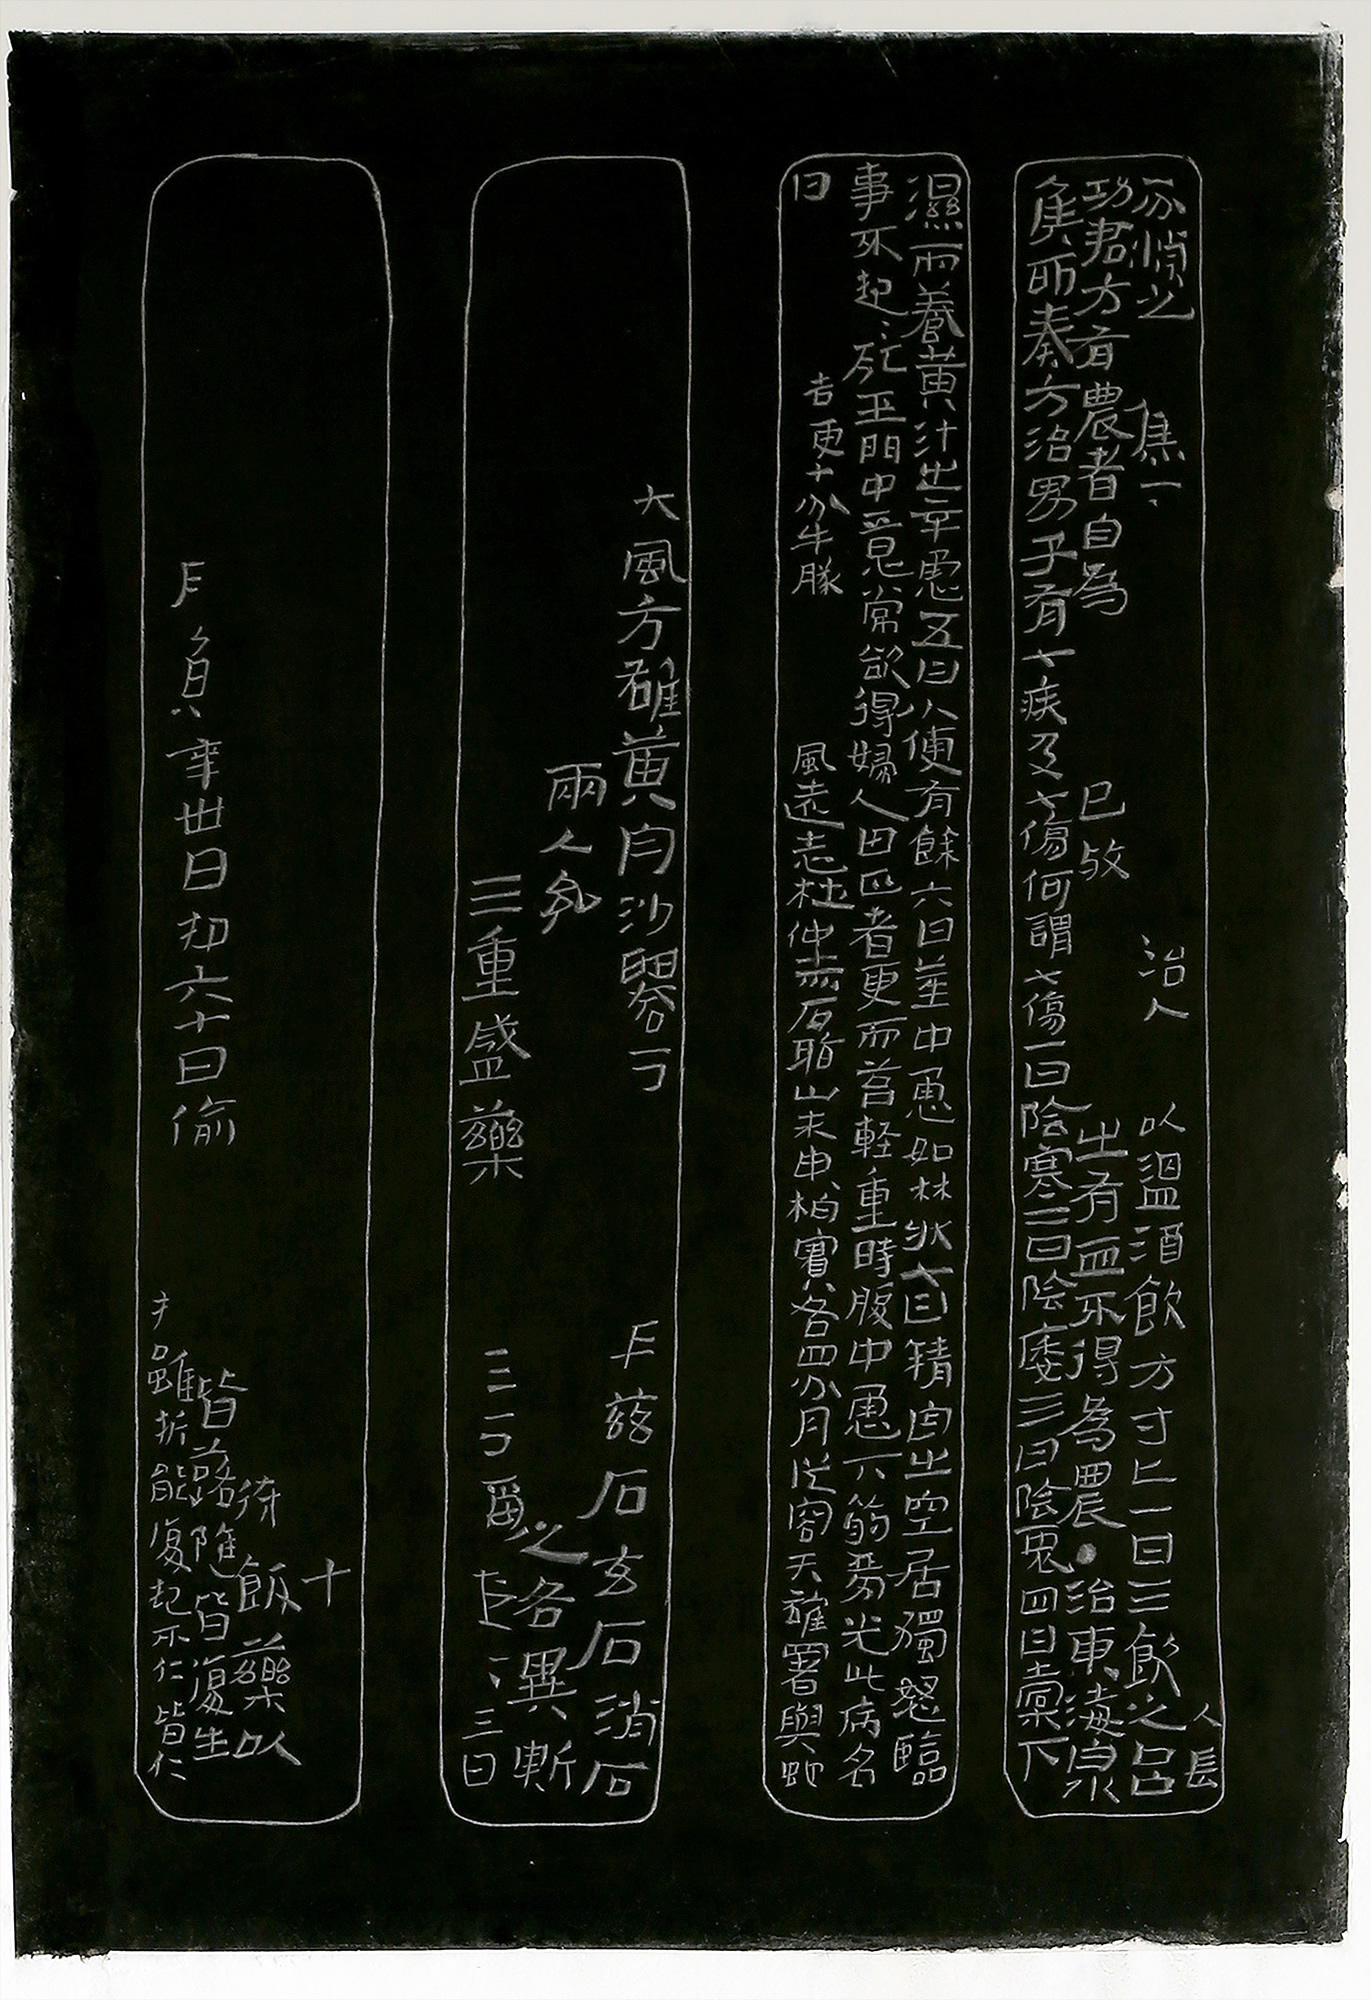 人長
不慎之 焦一、 治人 以温酒飲方寸匕一曰三飲之呂
功君方有農者自為 已 出有血不得為農●治東海白水
侯所奏方治男子有七疾及七傷何謂七傷一曰陰寒二曰陰痿三曰陰衰四曰橐下
濕而養黄汁出辛恿五曰小便有餘六曰莖中恿如林狀七曰精自出空居獨怒臨
事不起、死玉門中意常欲得婦人田匹者更而苔輕重時腹中恿下弱旁光此病名
曰 吉更十分牛膝 風遠志杜仲赤石脂山朱臾柏實各四分肉從容天雄署與虵
大風方雄黄丹沙礜 兹石玄石消石
兩 之各異斬
三重盛藥 三 三日
十
飯藥以
皆落隨皆復生
負 卅日知六十日偷 雖折能復起不仁皆仁